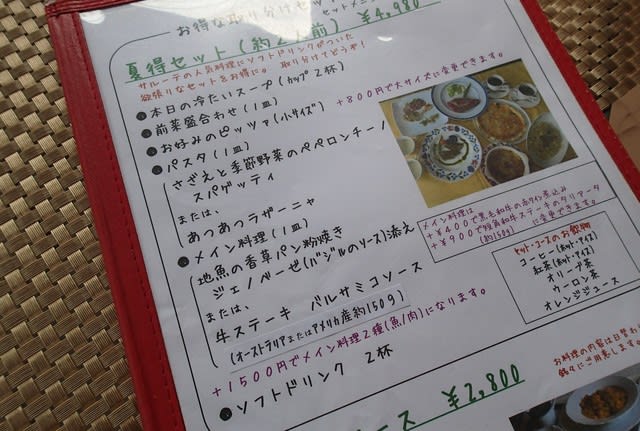 お得な取り分けセット
セットメニュー
夏得セット(約2人前) ¥4,980
サルーテの人気料理にソフトドリンクがついた
欲張りなセットをお得に。 取り分けどうぞ!
●本日の冷たいスープ(カップ2杯)
●前菜盛合わせ(1皿)
●お好みのピッツァ(小サイズ) +800円で大サイズに変更できます。
●パスタ(1皿)
さざえと季節野菜のペペロンチーノ
スパゲッティ
または、
あつあつラザーニャ
●メイン料理(1皿)
地魚の香草パン粉焼き
ジェノベーゼ(バジルのソース)添え
または、
牛ステーキ バルサミコソース
(オーストラリアまたはアメリカ産約150g)
+1500円でメイン料理2種(魚/肉)になります。
●ソフトドリンク 2杯
メイン料理は
+¥400で黒毛和牛の赤ワイン煮込み
+¥900で短角和牛ステーキのタリアータ
(約150g) に変更できます。
セット・コースのお飲物
コーヒー(ホット・アイス)
紅茶(ホット・アイス)
オリーブ茶
ウーロン茶
オレンジジュース
ース ¥2,800
お料理の内容は